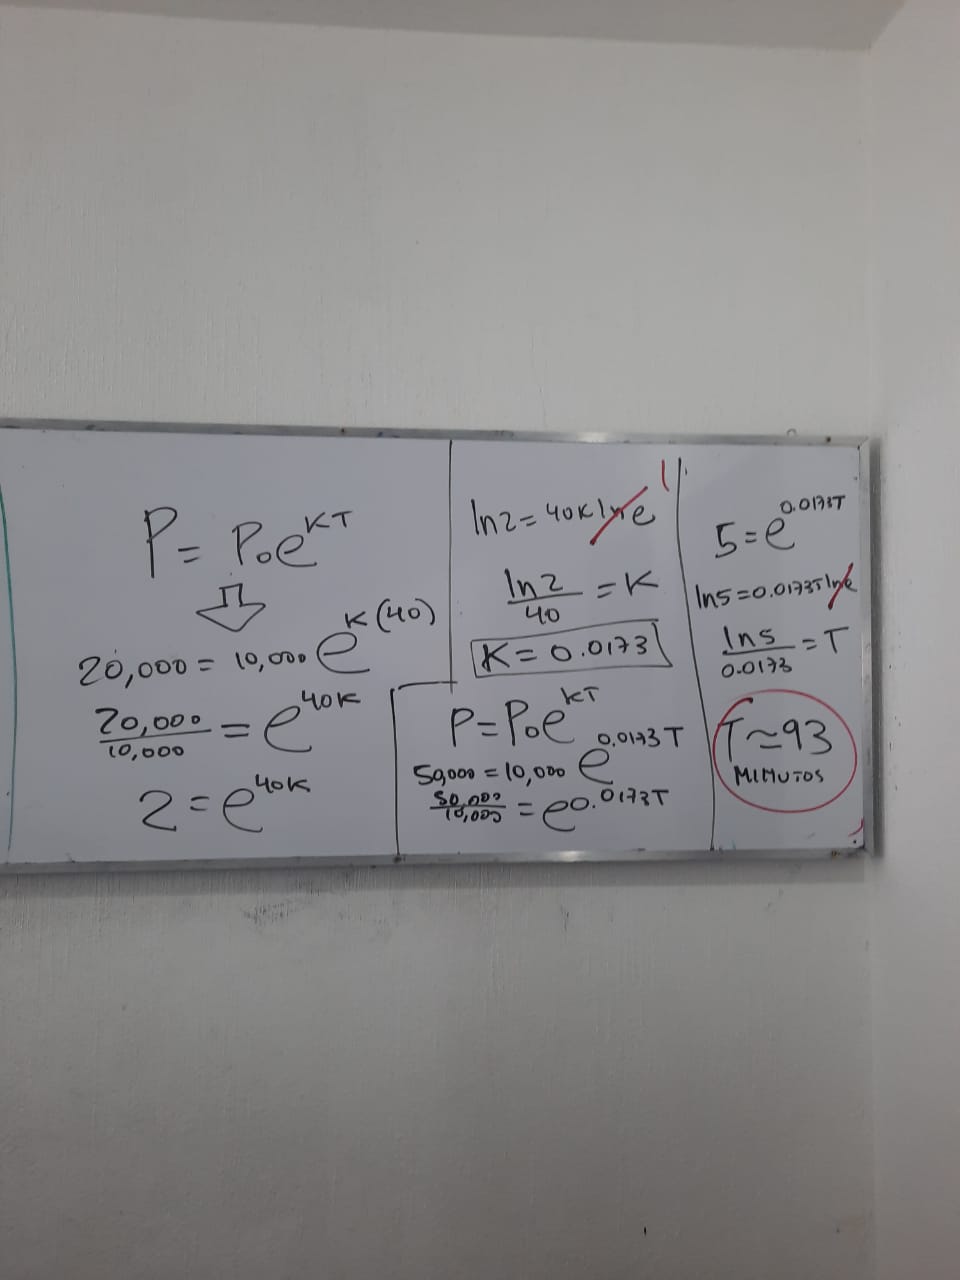 P = P₀e^KT
20,000 = 10,000 e^K(40)
20,000/10,000 = e^40K
2 = e^40K
ln2 = 40K lne 1
ln2/40 = K
K = 0.0173
P = P₀e^KT
50,000 = 10,000 e^0.0173T
50,000/10,000 = e^0.0173T
5 = e^0.0173T
ln5 = 0.0173T lne
ln5/0.0173 = T
T ≃ 93
MINUTOS